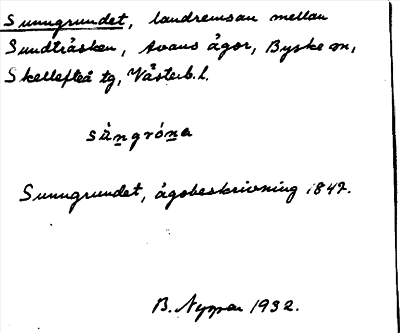 Sunngrundet, landremsan mellan
Sundträsken, Avans ägor, Byske sn,
Skellefteå tg, Västerb. l.
sùngróna
Sunngrundet, ägobeskrivning 1847.
B. Nyman 1932.